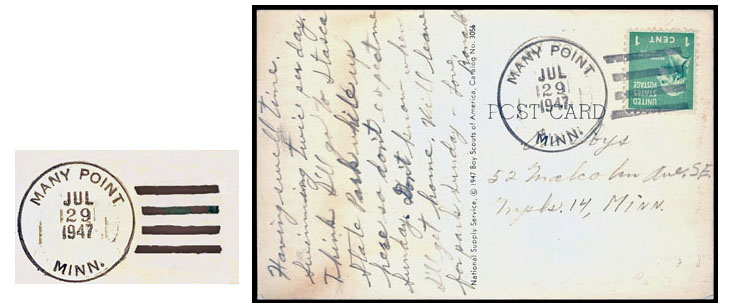 MANY POINT
JUL
29
1947
MINN.
Having swell time.
Swimming twice per day.
Think I'll go to Itasca
State Park while us
here so don't expect me
Sunday. Don't know when
I'll get home. Will leave
for park Sunday - love,
National Supply Service, © 1947 Boy Scouts of America, Catalog No. 3056
MANY POINT
JUL
29
1947
MINN.
POST CARD
1 CENT 1
UNITED
STATES
POSTAGE
52 Malcolm Ave. S.E.
Mpls. 14, Minn.